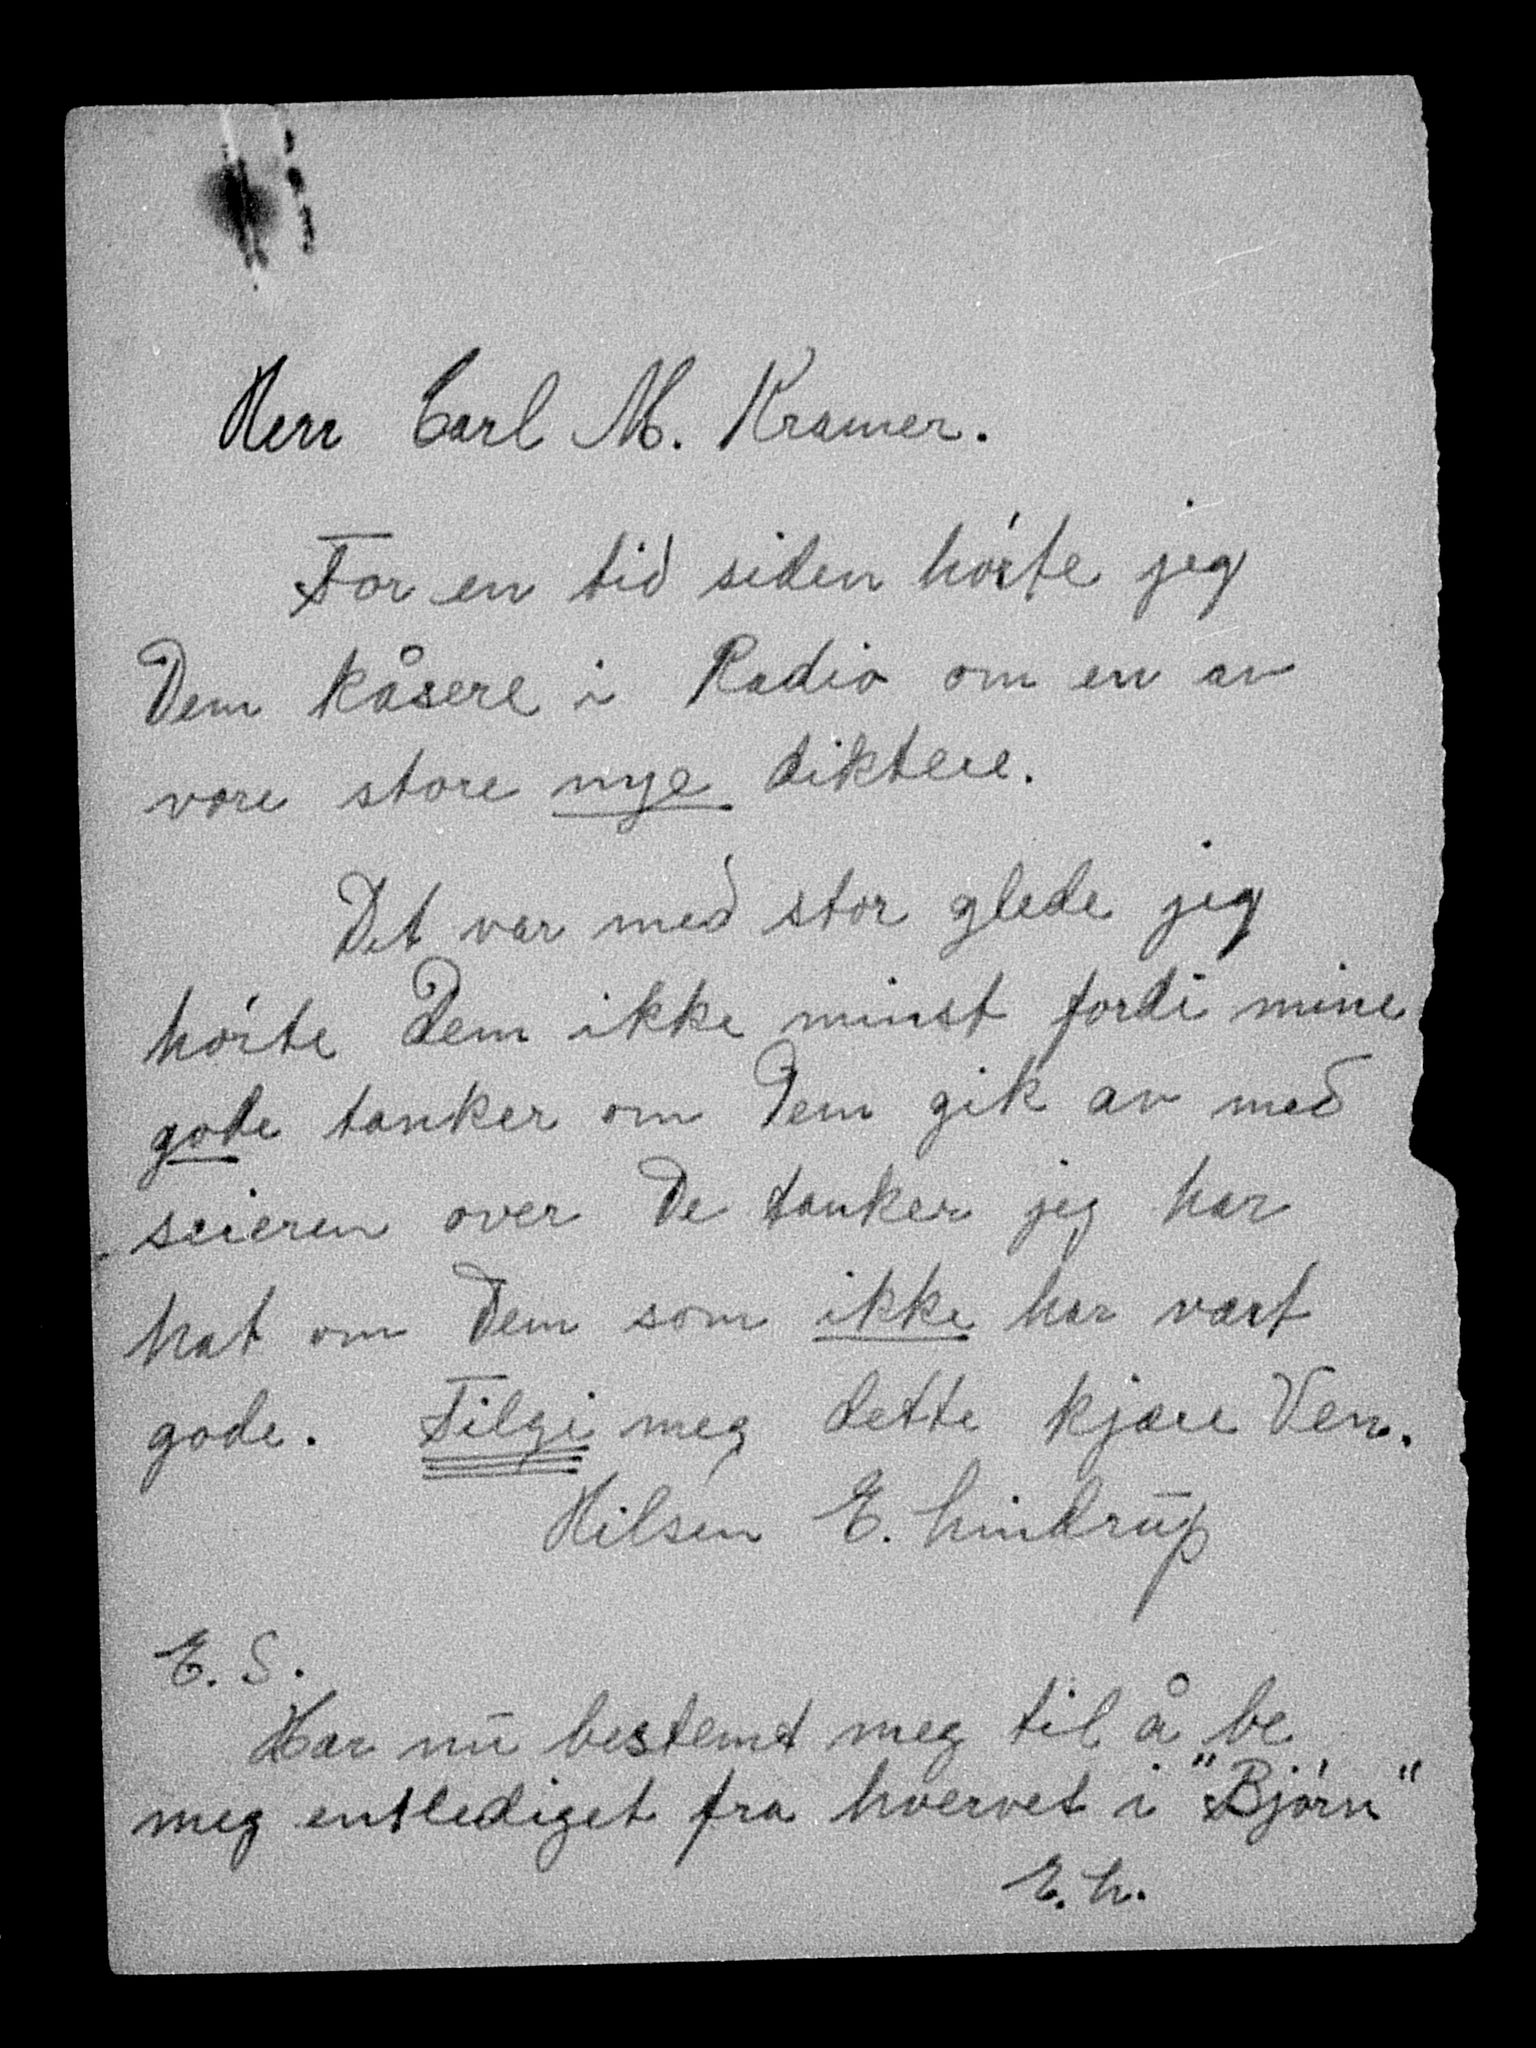 Herr Carl M. Kramer.
For en tid siden hørte jeg
Dem kåsere i Radio om en av
vore store nye diktere.
Det var med stor glede jeg
hørte Dem ikke minst fordi mine
gode tanker om Dem gik av med
seieren over de tanker jeg har
hat om Dem som ikke har vært
gode. Tilgi meg dette kjære Ven.
Hilsen E. Lindrup
E. S.
Har nu bestemt meg til å be
meg entlediget fra hvervet i "Bjørn"
E. L.